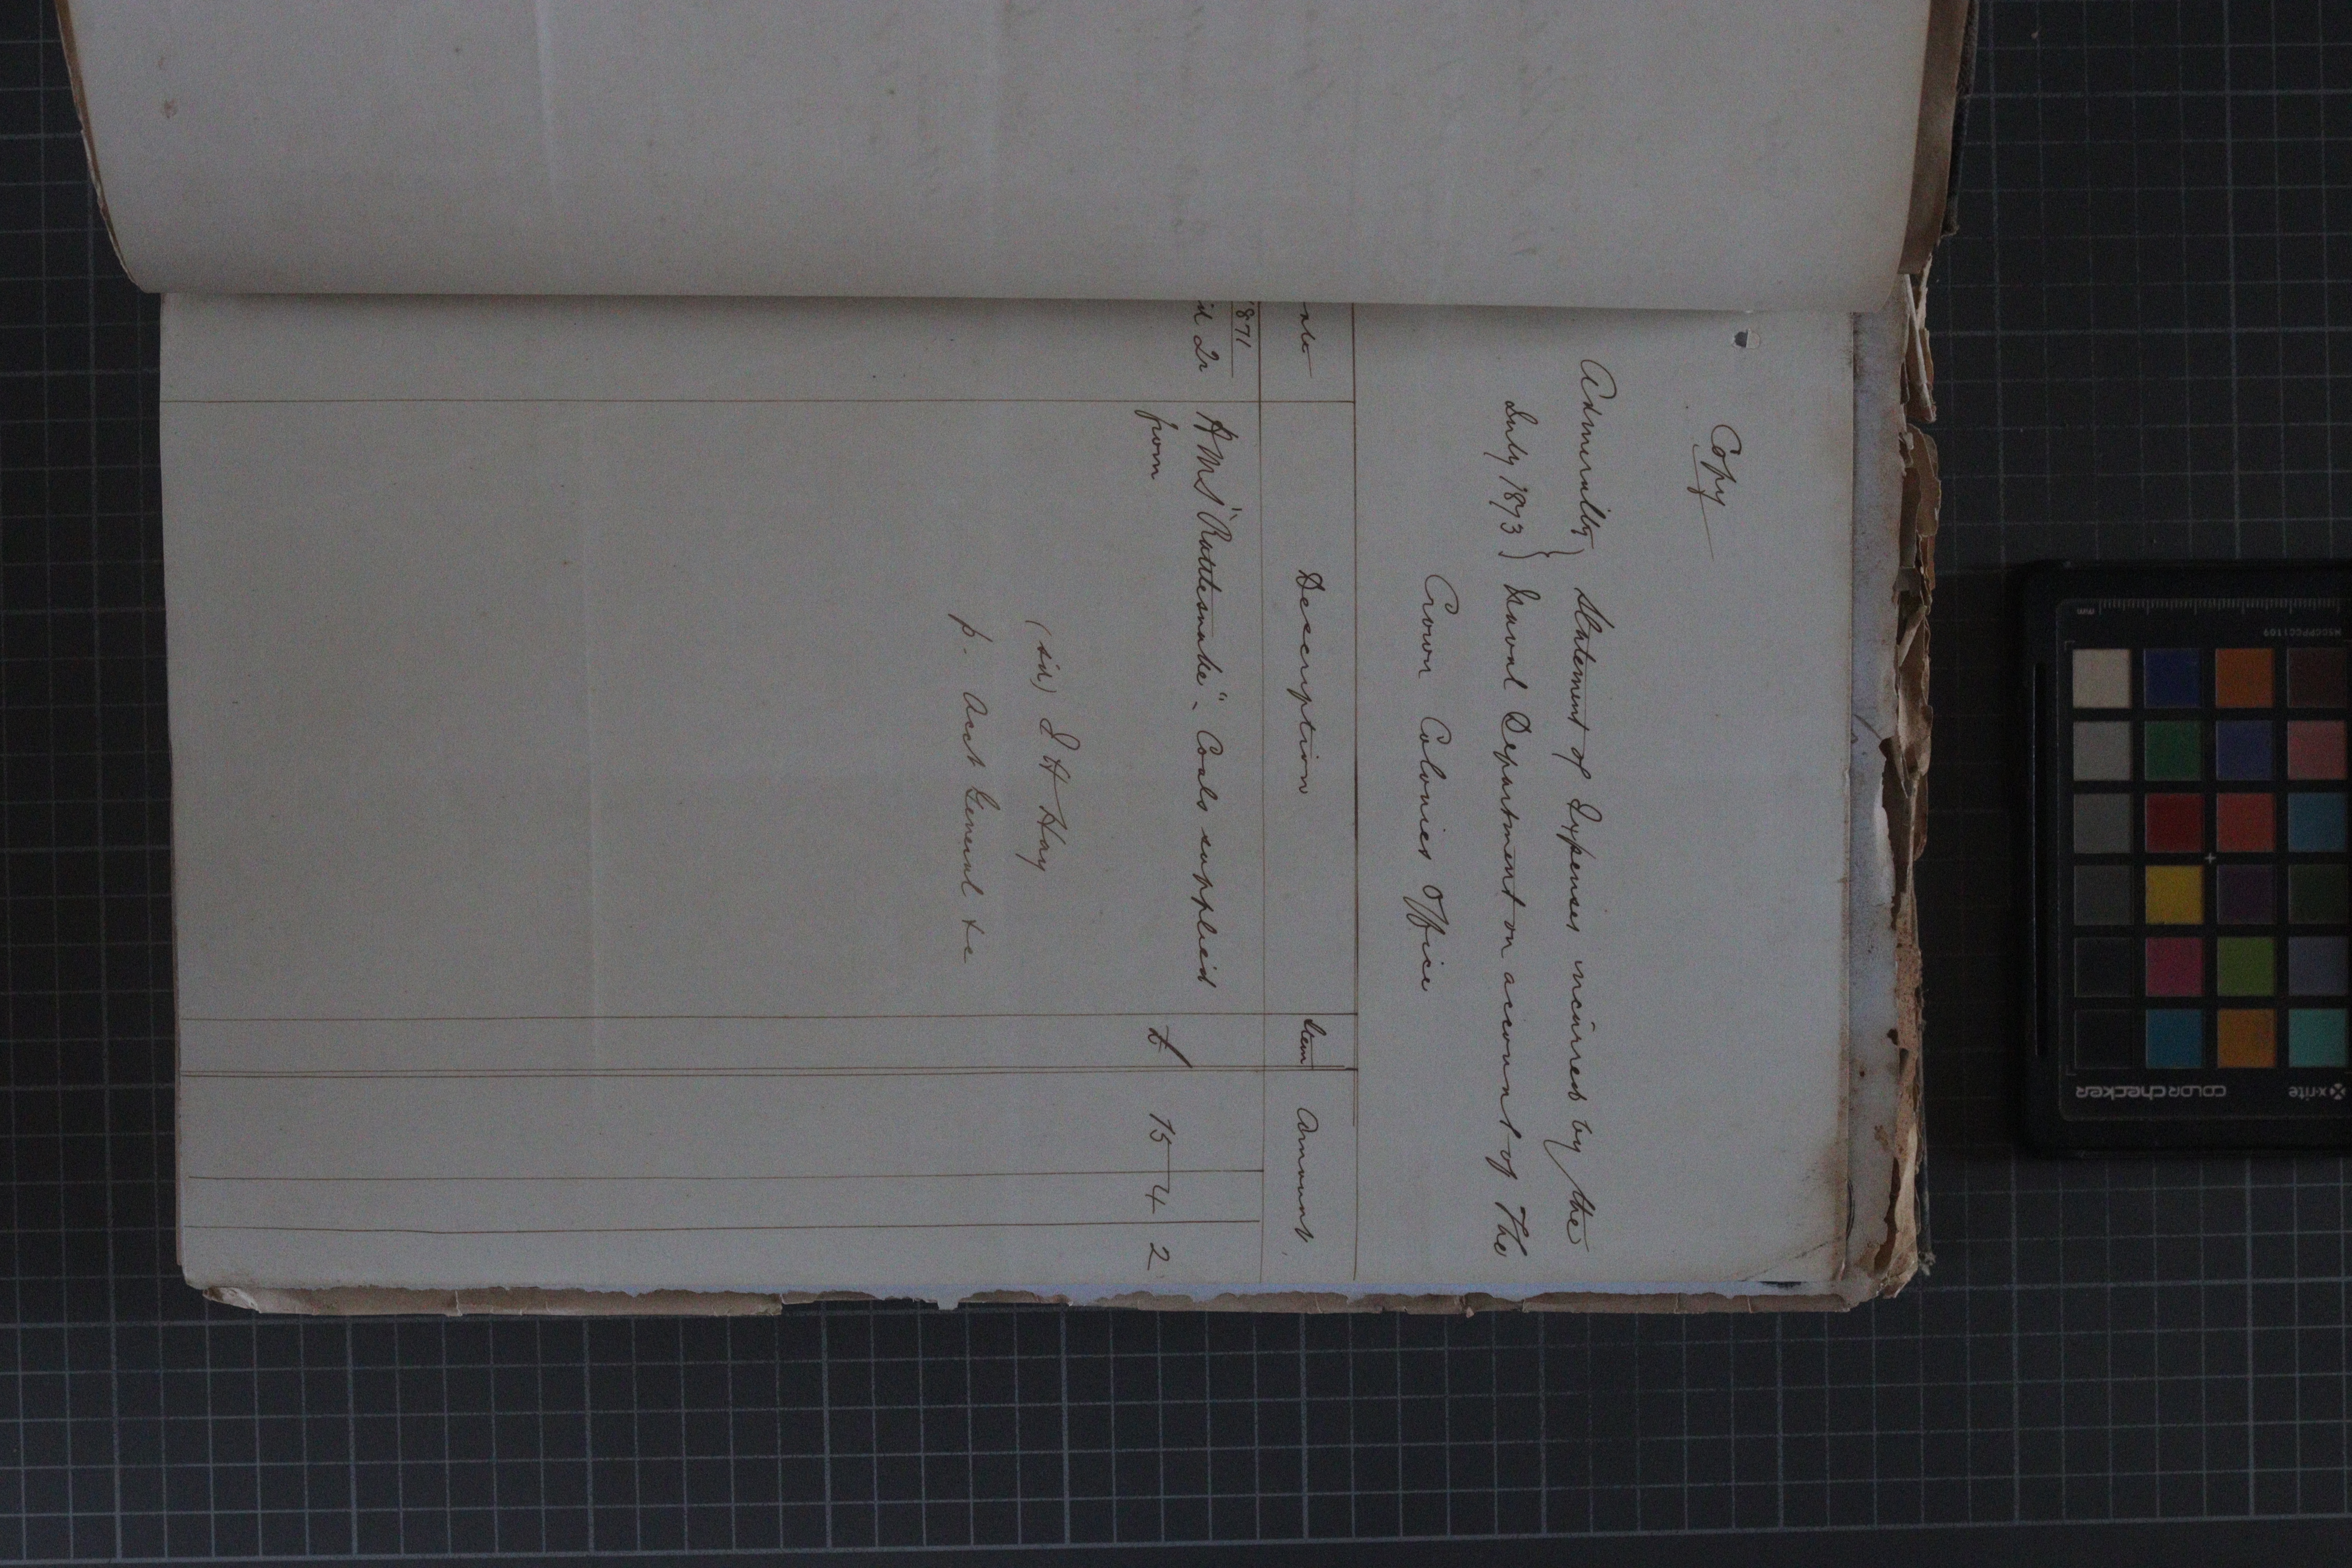 Copy
Admiralty } Statement of Expenses incurred by the
July 1873 } Naval Department on account of The
Crown Colonies Office
ate Description Item Amount
1871
il 2n HMS "Rattlesnake". Coals supplied
from £ 15 4 2
(sd) J H Hay
p. Acct General &c
x-rite
colorchecker
mm